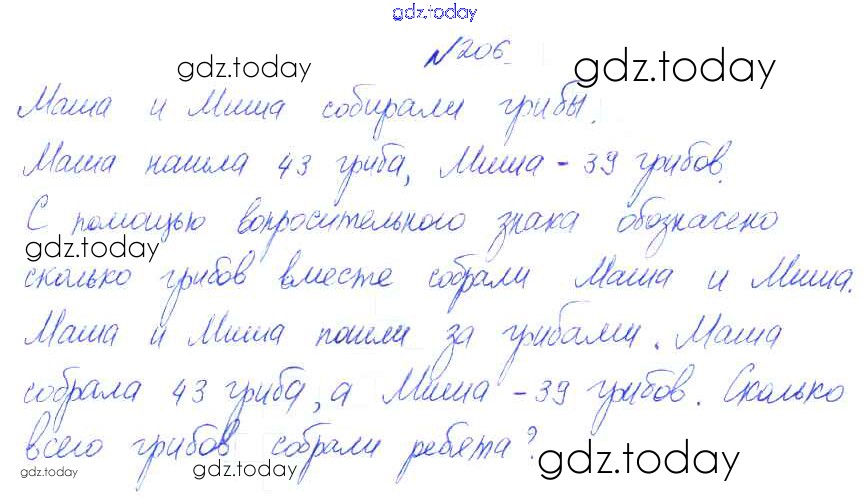 gdz.today
№206
gdz.today gdz.today
Маша и Миша собирали грибы.
Маша нашла 43 гриба, Миша - 39 грибов.
С помощью вопросительного знака обозначено
gdz.today
сколько грибов вместе собрали Маша и Миша.
Маша и Миша пошли за грибами. Маша
собрала 43 гриба, а Миша - 39 грибов. Сколько
всего грибов собрали ребята?
gdz.today gdz.today gdz.today